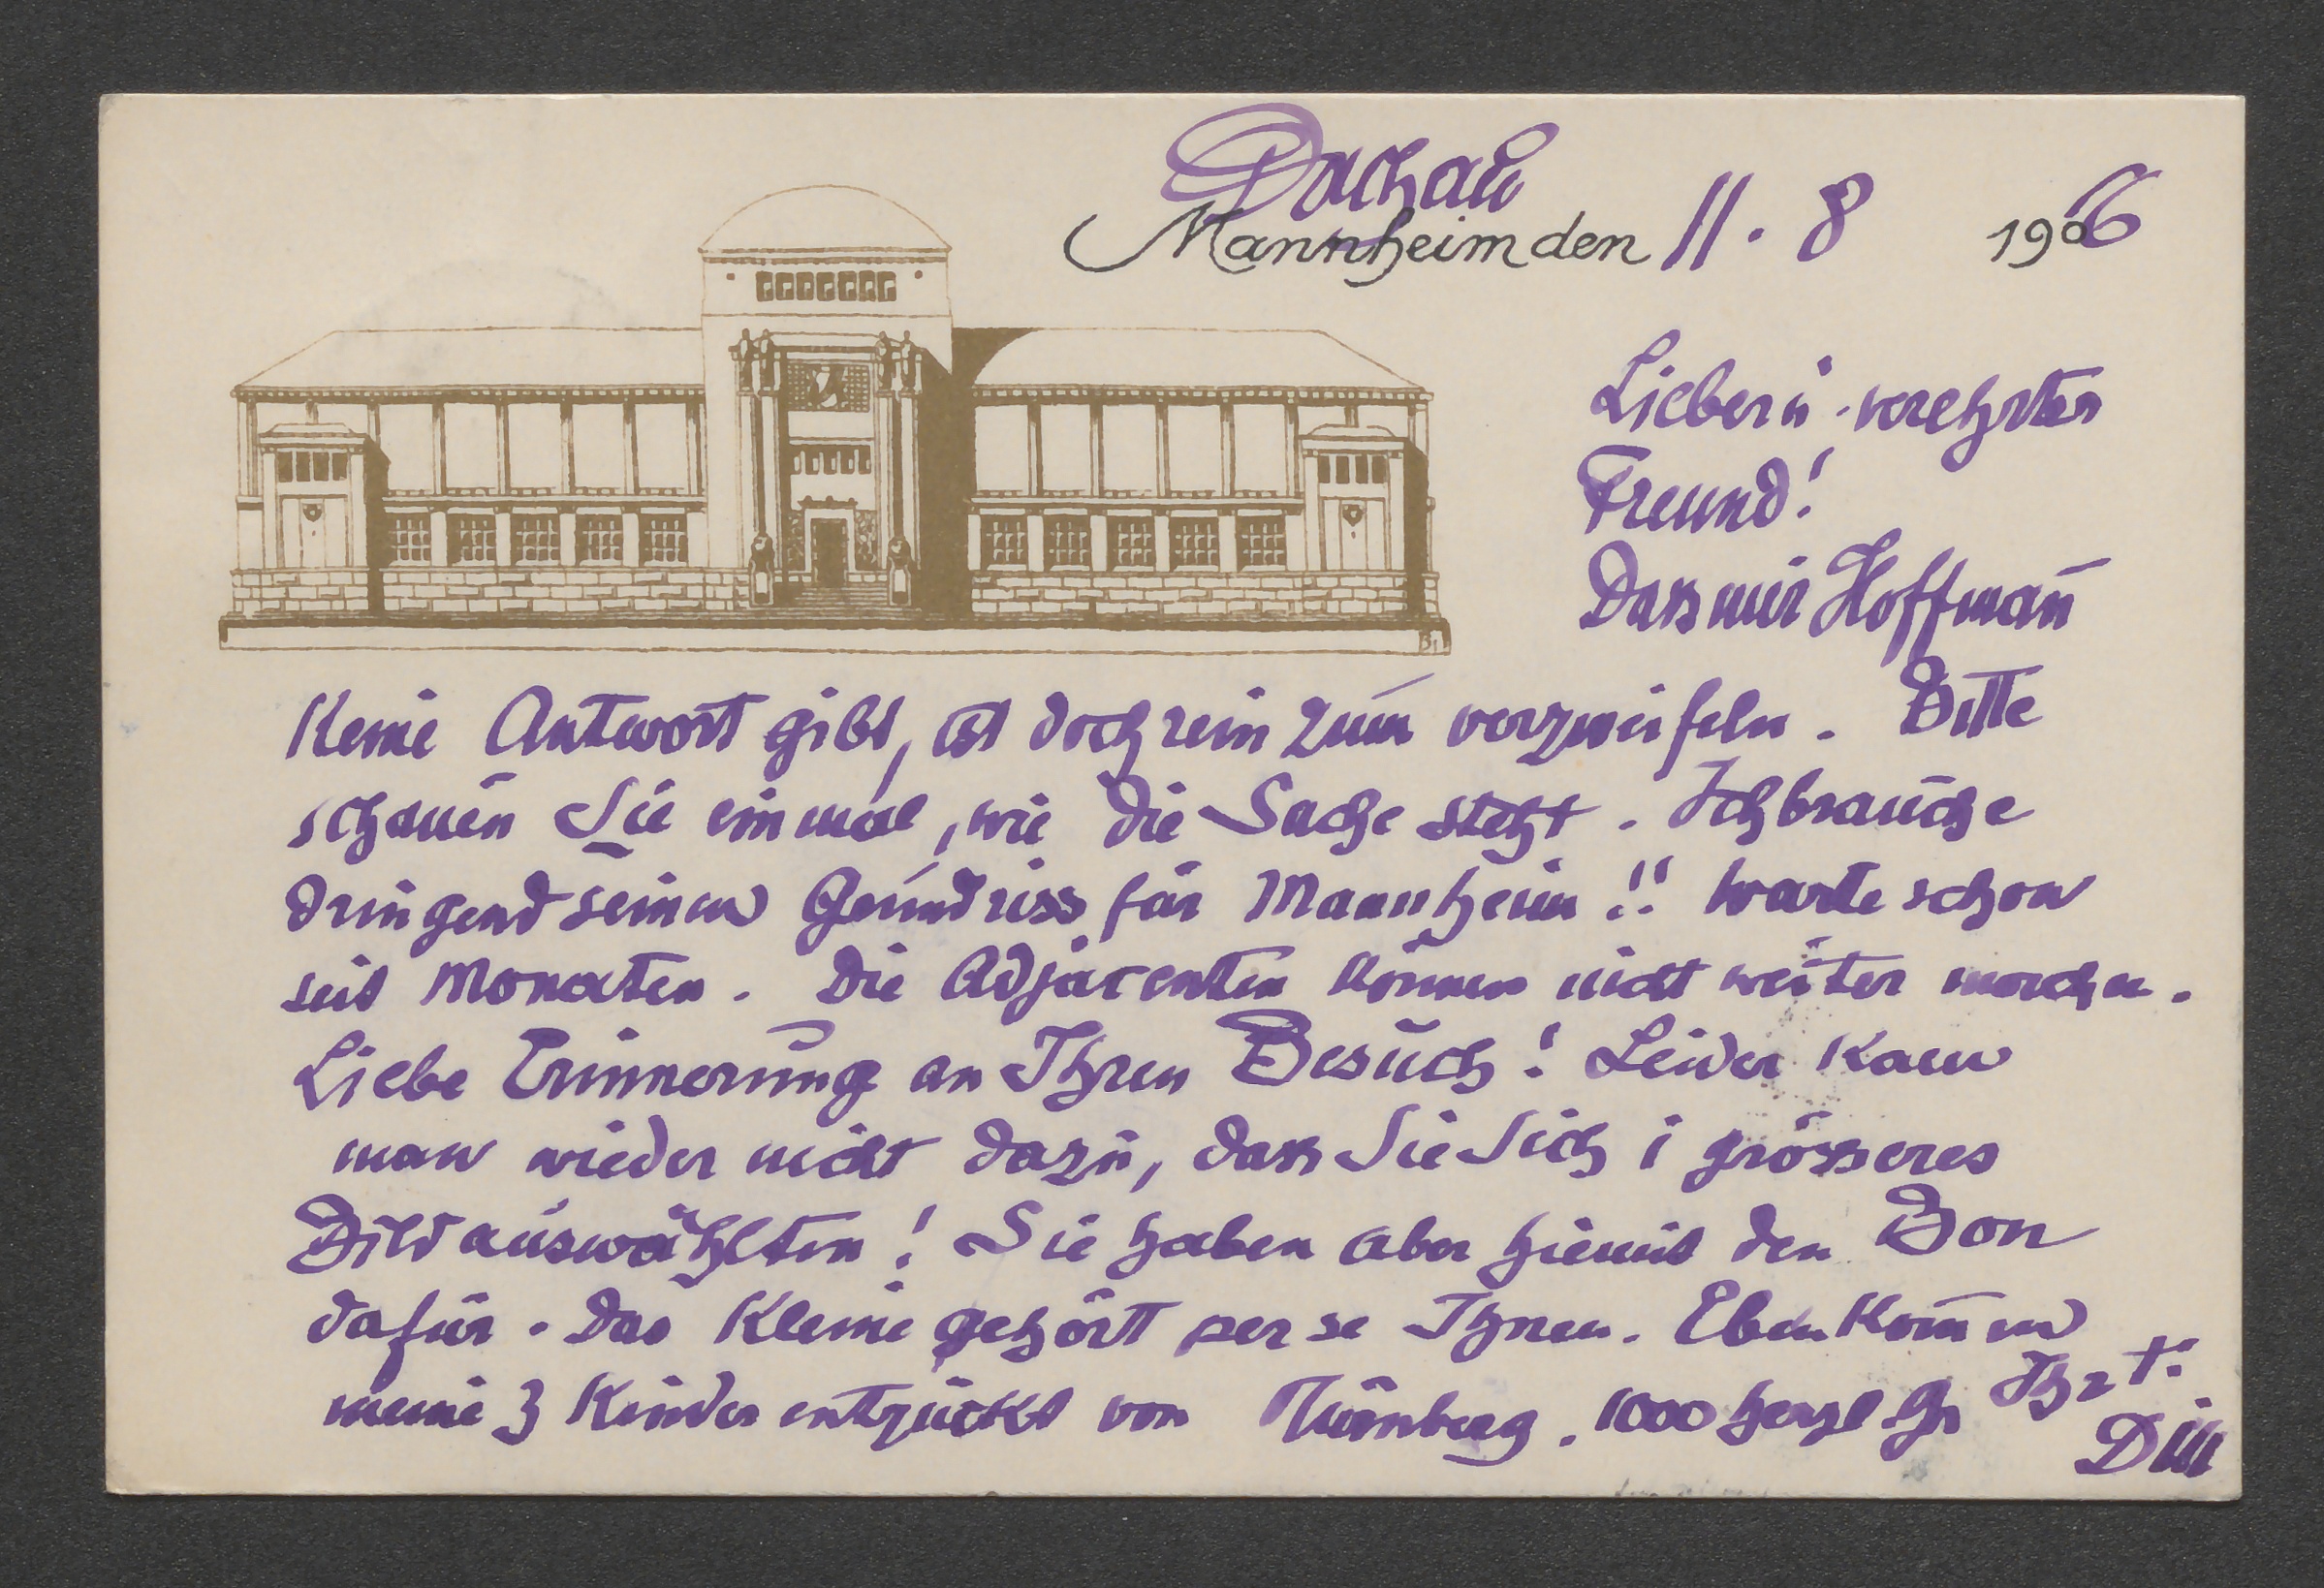 Dachau
Mannheim den 11. 8 1906
Lieber u. verehrter
Freund!
Dass mir Hoffmañ
keine Antwort gibt, ist doch rein zum verzweifeln. Bitte
schauen Sie einmal, wie die Sache steht. Ich brauche
dringend seinen Grundriss für Mannheim!! Warte schon
seit Monaten. Die Adjacenten können nicht weiter machen.
Liebe Erinnerung an Ihren Besuch! Leider kam
man wieder nicht dazu, dass Sie Sich 1 grösseres
Bild auswählten! Sie haben aber hiemit den Bon
dafür. Das kleine gehört per se Ihnen. Eben kom̄en
meine 3 Kinder entzückt von Nürnberg. 1000 herzl Gr
Dill